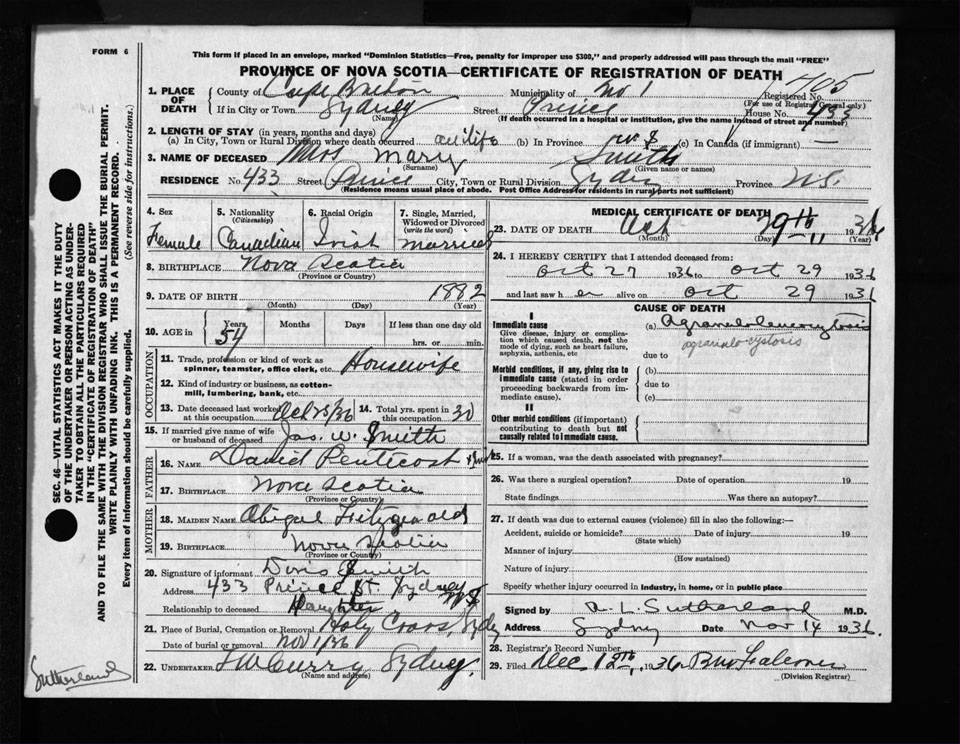 FORM 6
This form if placed in an envelope, marked "Dominion Statistics—Free, penalty for improper use $300," and properly addressed will pass through the mail "FREE"
PROVINCE OF NOVA SCOTIA—CERTIFICATE OF REGISTRATION OF DEATH
1. PLACE OF DEATH County of Cape Breton Municipality of No 1 Registered No. 405
(For use of Registrar General only)
If in City or Town Sydney Street Prince House No. 433
(Name) (If death occurred in a hospital or institution, give the name instead of street and number)
2. LENGTH OF STAY (in years, months and days)
(a) In City, Town or Rural Division where death occurred (b) In Province (c) In Canada (if immigrant) —
3. NAME OF DECEASED Mrs Mary Smith
(Surname) (Given name or names)
RESIDENCE No. 433 Street Prince City, Town or Rural Division Sydney Province N.S.
(Residence means usual place of abode. Post Office Address for residents in rural parts not sufficient)
4. Sex Female
5. Nationality (Citizenship) Canadian
6. Racial Origin Irish
7. Single, Married, Widowed or Divorced (write the word) married
8. BIRTHPLACE Nova Scotia
(Province or Country)
9. DATE OF BIRTH 1882
(Month) (Day) (Year)
10. AGE in Years 54 Months Days If less than one day old
hrs. or min.
OCCUPATION
11. Trade, profession or kind of work as spinner, teamster, office clerk, etc. Housewife
12. Kind of industry or business, as cotton-mill, lumbering, bank, etc.
13. Date deceased last worked at this occupation Oct 25/36 14. Total yrs. spent in this occupation 30
15. If married give name of wife or husband of deceased Jas. W. Smith
FATHER
16. NAME David Pentecost
17. BIRTHPLACE Nova Scotia
(Province or Country)
MOTHER
18. MAIDEN NAME Abigal Fitzgerald
19. BIRTHPLACE Nova Scotia
(Province or Country)
20. Signature of informant Doris Smith
Address 433 Prince St. Sydney NS
Relationship to deceased Daughter
21. Place of Burial, Cremation or Removal Holy Cross, Sydney
Date of burial or removal Nov 1/36
22. UNDERTAKER Curry Sydney
(Name and address)
MEDICAL CERTIFICATE OF DEATH
23. DATE OF DEATH Oct 29th 1936
(Month) (Day) (Year)
24. I HEREBY CERTIFY that I attended deceased from:
Oct 27 1936 to Oct 29 1936
and last saw her alive on Oct 29 1936
CAUSE OF DEATH
I
Immediate cause
Give disease, injury or complication which caused death, not the mode of dying, such as heart failure, asphyxia, asthenia, etc
(a)
agranulo-cystosis
due to
Morbid conditions, if any, giving rise to immediate cause (stated in order proceeding backwards from immediate cause).
(b)
due to
(c)
II
Other morbid conditions (if important) contributing to death but not causally related to immediate cause.
25. If a woman, was the death associated with pregnancy?
26. Was there a surgical operation? Date of operation 19
State findings Was there an autopsy?
27. If death was due to external causes (violence) fill in also the following:—
Accident, suicide or homicide? Date of injury 19
(State which)
Manner of injury
(How sustained)
Nature of injury
Specify whether injury occurred in industry, in home, or in public place
Signed by R. L. Sutherland M.D.
Address Sydney Date Nov 14 1936.
28. Registrar's Record Number
29. Filed Dec 12th, 1936 Falconer
(Division Registrar)
SEC. 46—VITAL STATISTICS ACT MAKES IT THE DUTY
OF THE UNDERTAKER OR PERSON ACTING AS UNDER-
TAKER TO OBTAIN ALL THE PARTICULARS REQUIRED
IN THE "CERTIFICATE OF REGISTRATION OF DEATH"
AND TO FILE THE SAME WITH THE DIVISION REGISTRAR WHO SHALL ISSUE THE BURIAL PERMIT.
WRITE PLAINLY WITH UNFADING INK. THIS IS A PERMANENT RECORD.
Every item of information should be carefully supplied. (See reverse side for instructions.)
Sutherland